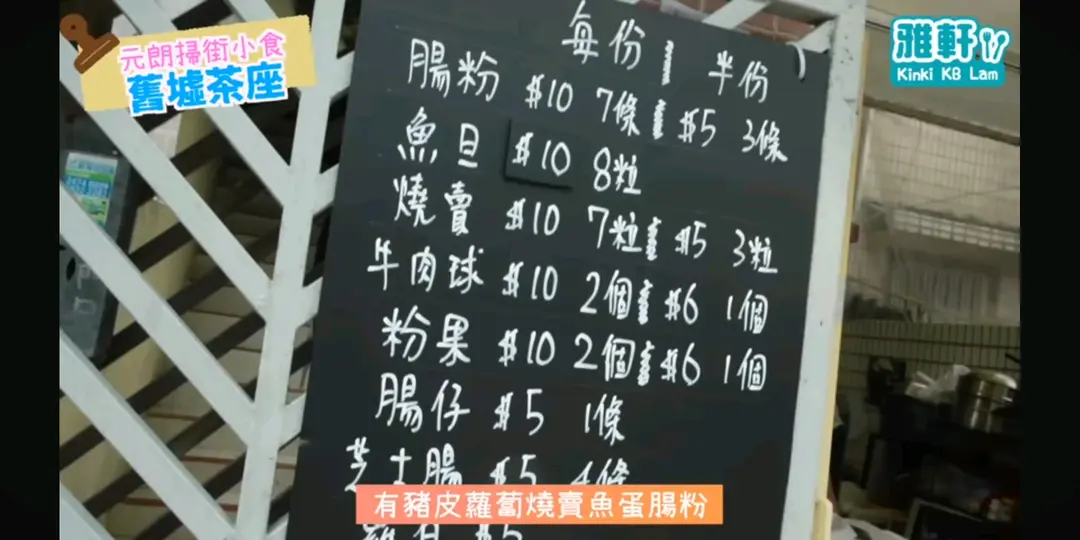 元朗掃街小食
舊墟茶座
雅軒TV
Kinki KB Lam
每份 半份
腸粉 $10 7條 $5 3條
魚旦 $10 8粒
燒賣 $10 7粒 $5 3粒
牛肉球 $10 2個 $6 1個
粉果 $10 2個 $6 1個
腸仔 $5 1條
芝士腸 $5
$5
有豬皮蘿蔔燒賣魚蛋腸粉